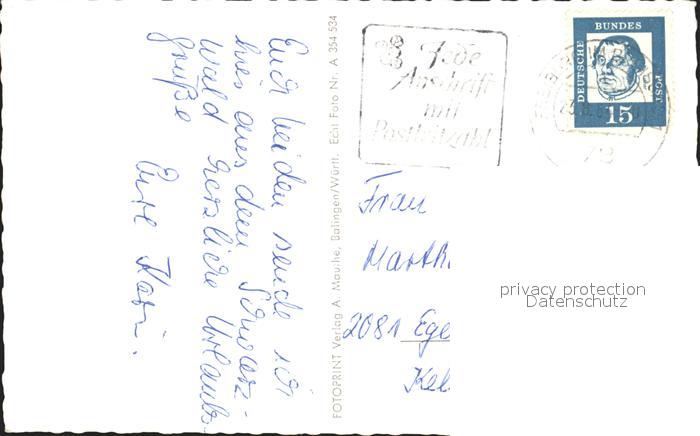 Euch beiden sende ich
hier aus dem Schwarz-
wald herzliche Urlaubs-
grüße
Eure Kathi.
FOTOPRINT Verlag A. Mauthe, Balingen/Württ. Echt Foto Nr. A 354 534
Jede
Anschrift
mit
Postleitzahl
DEUTSCHE
BUNDES
POST
15
Frau
Marth
2081 Ege
Kel
privacy protection
Datenschutz